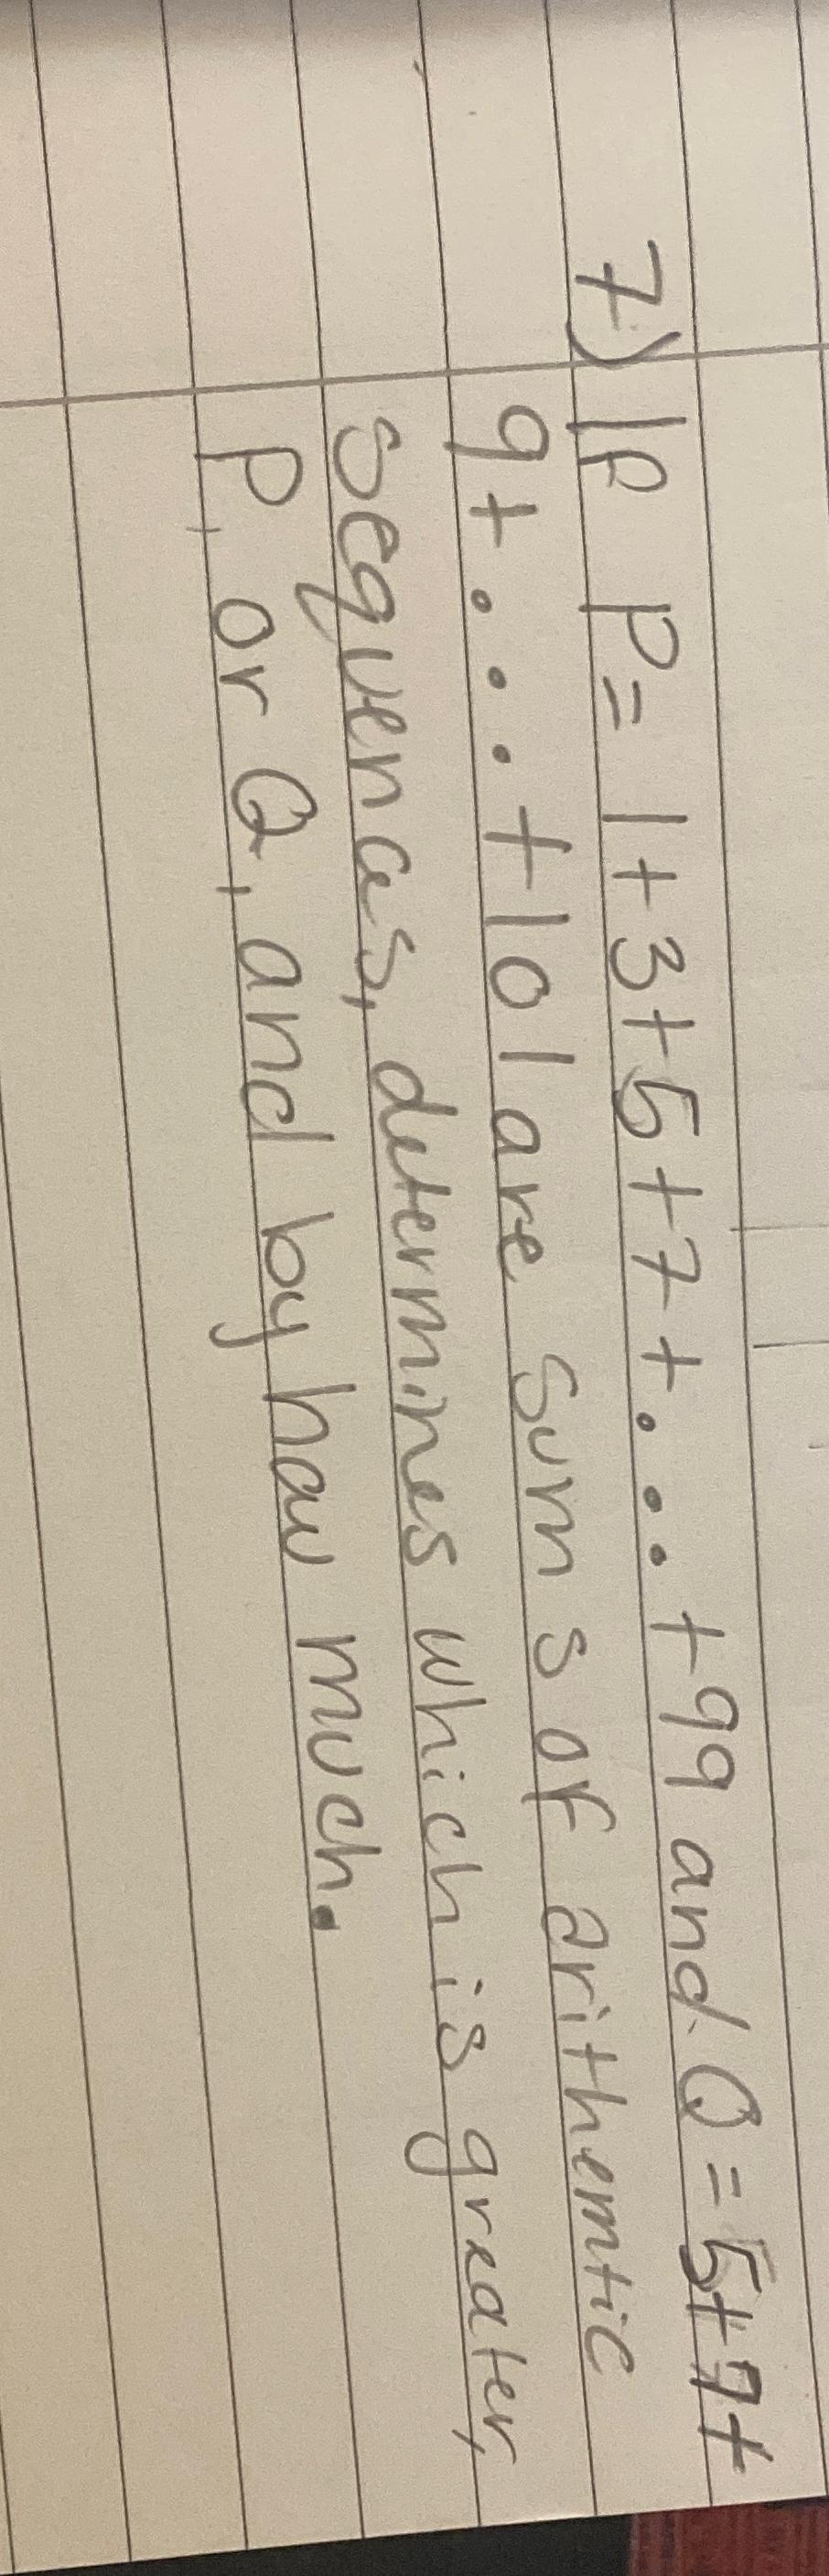 7) IF P = 1+3+5+7+...+99 and Q = 5+7+
9+...+101 are sums of arithemtic
sequences, determines which is greater,
P, or Q, and by how much.